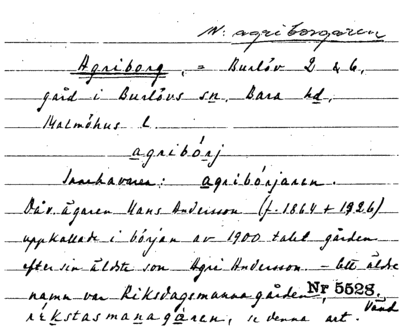 N: agriborgaren
Agriborg, = Burlöv 2 & 6,
gård i Burlövs sn, Bara hd,
Malmöhus l.
agribórj
Innehavaren: agribórjaren.
Dåv. ägaren Hans Andersson (f. 1864 + 1926)
uppkallade i början av 1900 talet gården
efter sin äldste son Agri Andersson. – Ett äldre
namn var Riksdagsmannagården, Nr 5528.
rikstasmanagåren, se denna art. Vänd